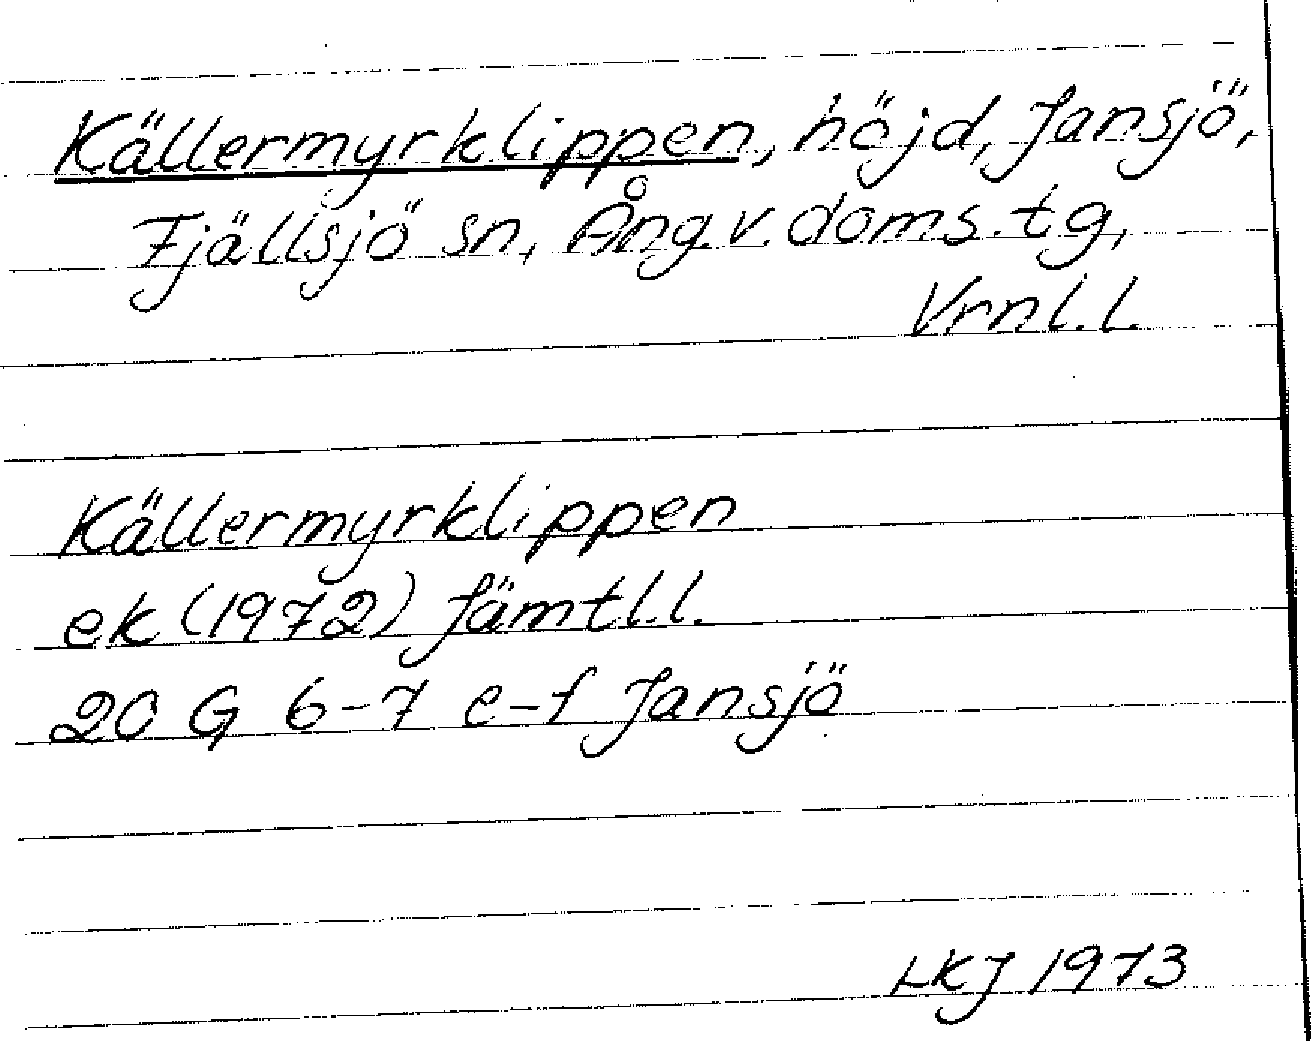 Källermyrklippen, höjd, Jansjö,
Fjällsjö sn, Ång.v. doms.tg,
Vrnl.l.
Källermyrklippen
ek (1972) Jämtl.l.
20 G 6-7 e-f Jansjö
LKJ 1973